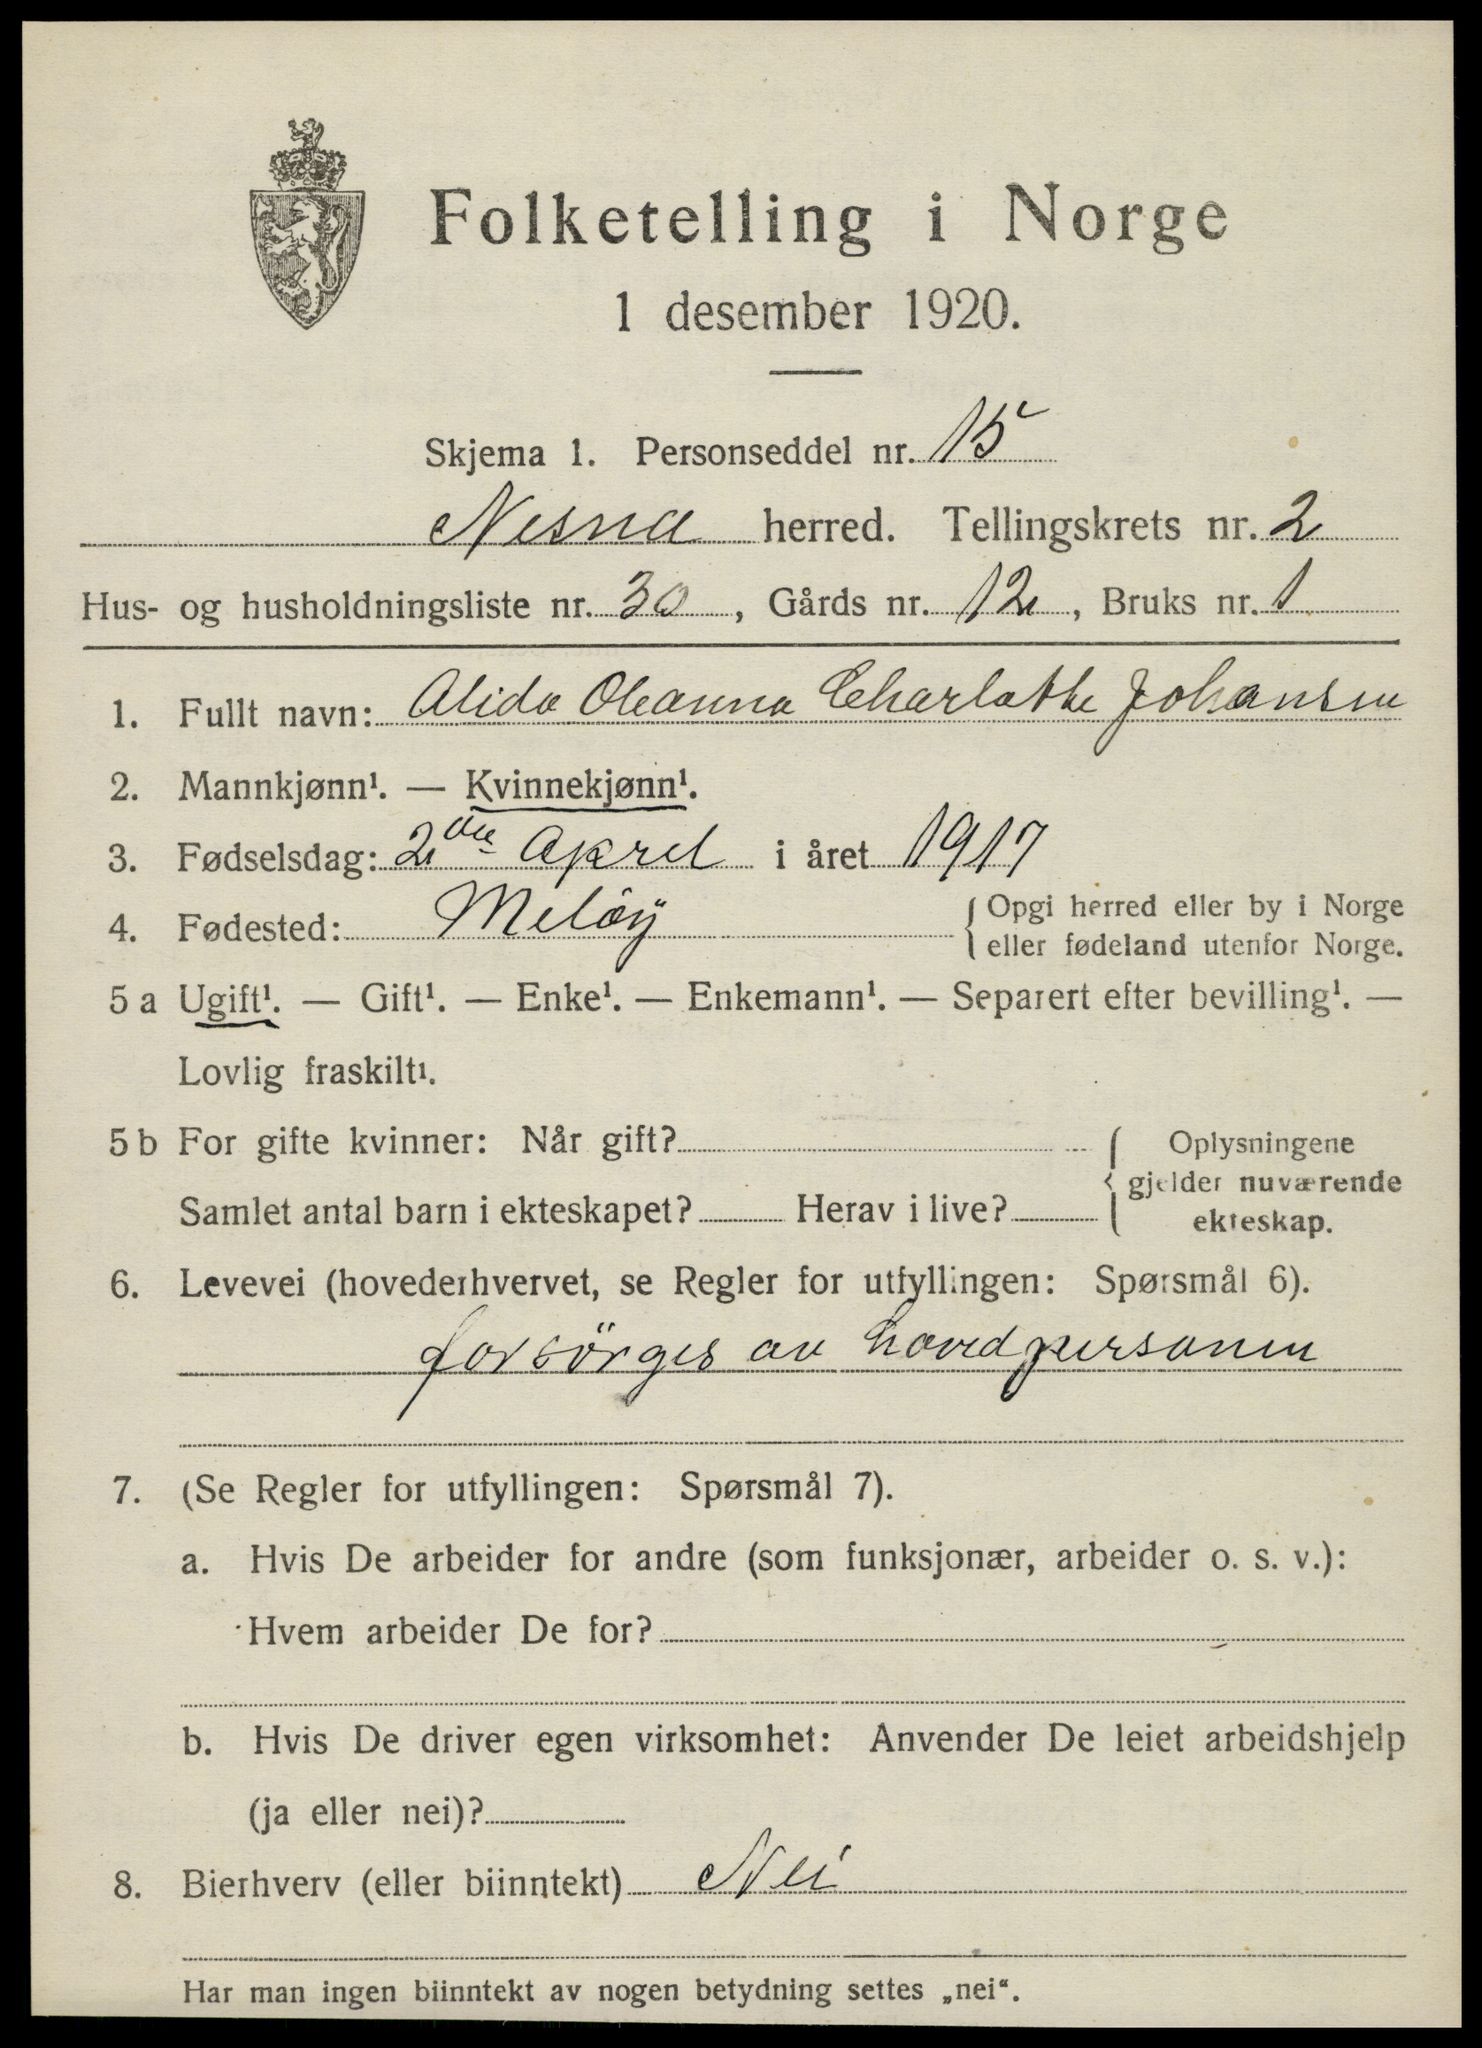 Folketelling i Norge
1 desember 1920.
Skjema 1. Personseddel nr. 15
Nesna herred. Tellingskrets nr. 2
Hus- og husholdningsliste nr. 30, Gårds nr. 12, Bruks nr. 1
1. Fullt navn: Alida Oleanna Charlotte Johansen
2. Mannkjønn¹. — Kvinnekjønn¹.
3. Fødselsdag: 2den April i året 1917
4. Fødested: Meløy { Opgi herred eller by i Norge
eller fødeland utenfor Norge.
5 a Ugift¹. — Gift¹. — Enke¹. — Enkemann¹. — Separert efter bevilling¹. —
Lovlig fraskilt¹.
5 b For gifte kvinner: Når gift? { Oplysningene
gjelder nuværende
Samlet antal barn i ekteskapet? Herav i live? ekteskap.
6. Levevei (hovederhvervet, se Regler for utfyllingen: Spørsmål 6).
forsörges av hovedpersonen
7. (Se Regler for utfyllingen: Spørsmål 7).
a. Hvis De arbeider for andre (som funksjonær, arbeider o. s. v.):
Hvem arbeider De for?
b. Hvis De driver egen virksomhet: Anvender De leiet arbeidshjelp
(ja eller nei)?
8. Bierhverv (eller biinntekt) Nei
Har man ingen biinntekt av nogen betydning settes „nei“.